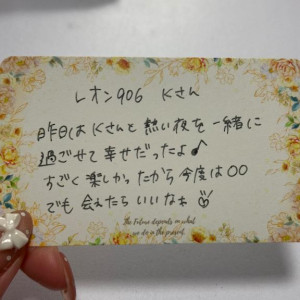 レオン906 Kさん
昨日はKさんと熱い夜を一緒に
過ごせて幸せだったよ♪
すごく楽しかったから今度は〇〇
でも会えたらいいなぁ♡
The Future depends on what
we do in the present.